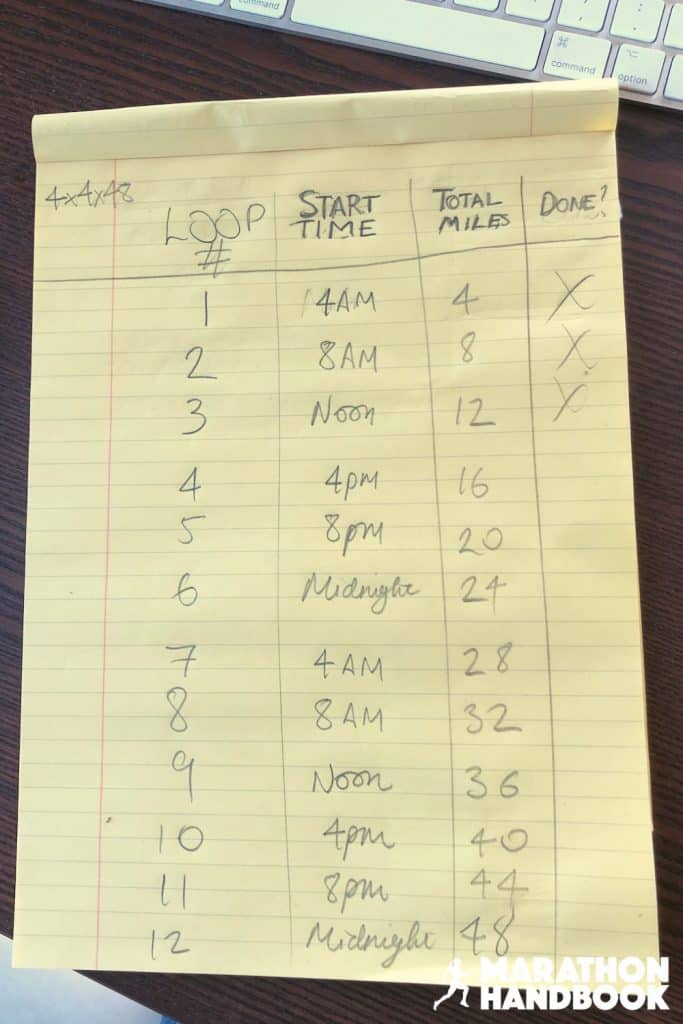 command
⌘
command
⌥
option
4x4x48
LOOP # START TIME TOTAL MILES DONE?
1 4AM 4 X
2 8AM 8 X
3 Noon 12 X
4 4pm 16
5 8pm 20
6 Midnight 24
7 4AM 28
8 8AM 32
9 Noon 36
10 4pm 40
11 8pm 44
12 Midnight 48
MARATHON
HANDBOOK